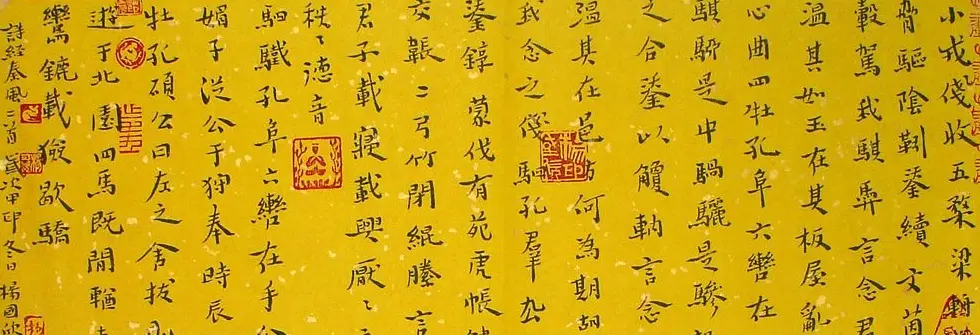 小戎俴收五楘梁輈
脅驅陰靷鋈續文茵
轂駕我騏馵言念君
溫其如玉在其板屋亂
心曲四牡孔阜六轡在
騏駵是中騧驪是驂
之合鋈以觼軜言念
溫其在邑方何為期胡
我念之俴駟孔羣厹
鋈錞蒙伐有苑虎帳
交韔二弓竹閉緄縢言
君子載寢載興厭〻
秩〻德音
駟驖孔阜六轡在手公
媚子從公于狩奉時辰
牡孔碩公曰左之舍拔則
遊于北園四馬既閒輶
鸞鑣載獫歇驕
詩經秦風二首歲次甲申冬日楊國欣